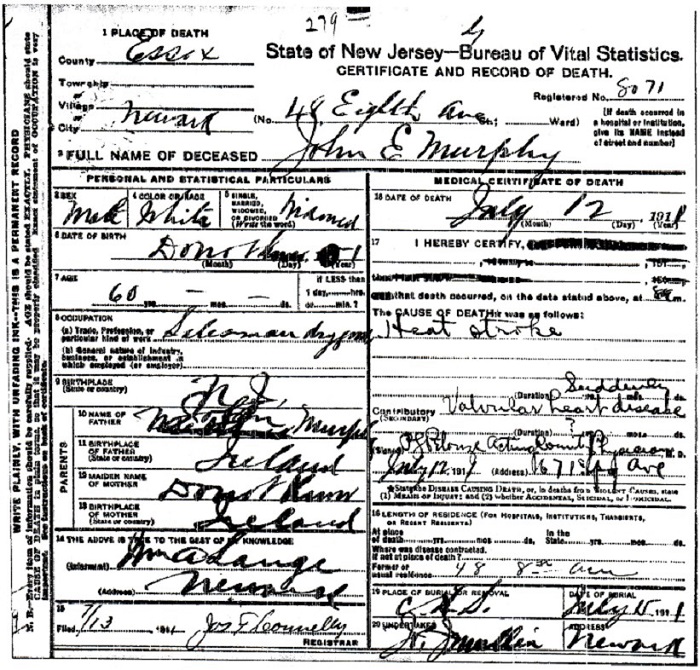 279
1 PLACE OF DEATH
County Essex
State of New Jersey—Bureau of Vital Statistics.
CERTIFICATE AND RECORD OF DEATH.
Township
Registered No. 8071
Village
City Newark (No. 48 Eighth Ave St.; Ward)
(If death occurred in a hospital or institution, give its NAME instead of street and number)
2 FULL NAME OF DECEASED John E Murphy
PERSONAL AND STATISTICAL PARTICULARS
3 SEX Male
4 COLOR OR RACE White
5 SINGLE, MARRIED, WIDOWED, OR DIVORCED (Write the word) Widowed
6 DATE OF BIRTH Dont Know
(Month) (Day) (Year)
7 AGE 60 yrs. — mos. — ds.
If LESS than 1 day, hrs. or min.?
8 OCCUPATION
(a) Trade, Profession, or particular kind of work Salesman dry goods
(b) General nature of industry, business, or establishment in which employed (or employer)
9 BIRTHPLACE (State or country) N.J.
PARENTS
10 NAME OF FATHER Murphy
11 BIRTHPLACE OF FATHER (State or country) Ireland
12 MAIDEN NAME OF MOTHER Dont Know
13 BIRTHPLACE OF MOTHER (State or country) Ireland
14 THE ABOVE IS TRUE TO THE BEST OF MY KNOWLEDGE
(Informant) Wm A Lange
(Address) Newark
15
Filed 7/13 1911 Jos F Connelly
MEDICAL CERTIFICATE OF DEATH
16 DATE OF DEATH July 12 1911
(Month) (Day) (Year)
17 I HEREBY CERTIFY,
that death occurred, on the date stated above, at m.
The CAUSE OF DEATH was as follows:
Heat stroke
Suddenly
(Duration) yrs. mos. ds.
Contributory (SECONDARY) Valvular heart disease
(Duration) ? mos. ds.
(Signed) Acting County Physician M.D.
July 12 1911 (Address)
State the DISEASE CAUSING DEATH, or, in deaths from VIOLENT CAUSES, state
(1) MEANS OF INJURY; and (2) whether ACCIDENTAL, SUICIDAL, or HOMICIDAL.
18 LENGTH OF RESIDENCE (FOR HOSPITALS, INSTITUTIONS, TRANSIENTS, OR RECENT RESIDENTS)
At place of death yrs. mos. ds. In the State yrs. mos. ds.
Where was disease contracted, if not at place of death?
Former or usual residence 48 8th Ave
19 PLACE OF BURIAL OR REMOVAL
DATE OF BURIAL July 15 1911
20 UNDERTAKER
ADDRESS Newark
WRITE PLAINLY, WITH UNFADING INK—THIS IS A PERMANENT RECORD
N. B.—Every item of information should be carefully supplied. AGE should be stated EXACTLY. PHYSICIANS should state
CAUSE OF DEATH in plain terms, so that it may be properly classified. Exact statement of OCCUPATION is very
important. See instructions on back of certificate.